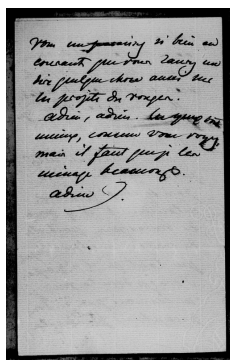 vous me paraissez si bien au
courant que vous saurez me
dire quelque chose aussi sur
les projets du voyage.
adieu, adieu. les yeux vont
mieux, comme vous voyez
mais il faut que je les
ménage beaucoup.
adieu